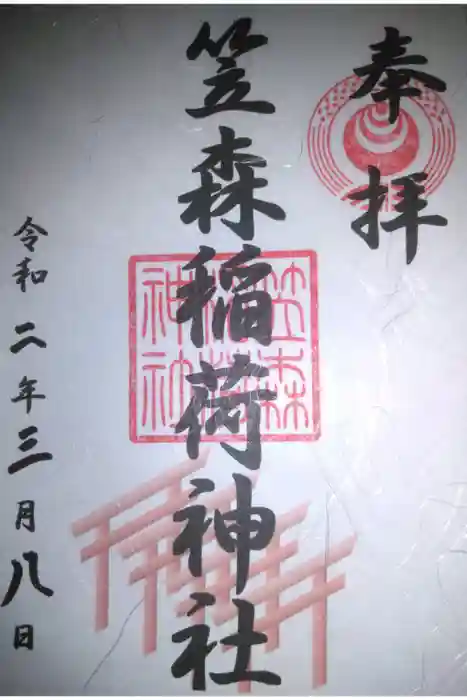 奉拝
笠森稲荷神社
笠森
稲荷
神社
令和二年三月八日